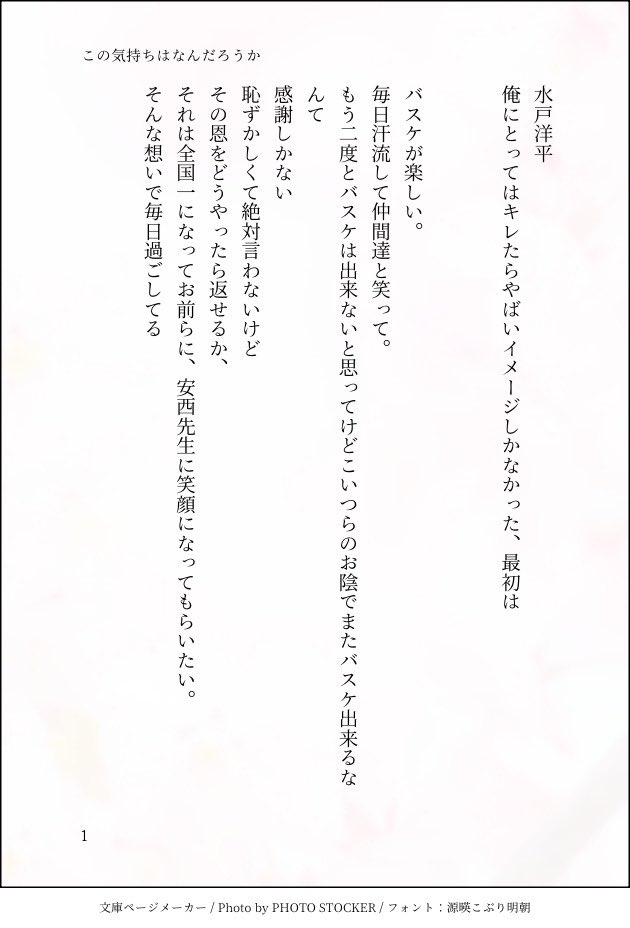 この気持ちはなんだろうか
水戸洋平
俺にとってはキレたらやばいイメージしかなかった、最初は
バスケが楽しい。
毎日汗流して仲間達と笑って。
もう二度とバスケは出来ないと思ってけどこいつらのお陰でまたバスケ出来るな
んて
感謝しかない
恥ずかしくて絶対言わないけど
その恩をどうやったら返せるか、
それは全国一になってお前らに、安西先生に笑顔になってもらいたい。
そんな想いで毎日過ごしてる
1
文庫ページメーカー / Photo by PHOTO STOCKER / フォント：源暎こぶり明朝